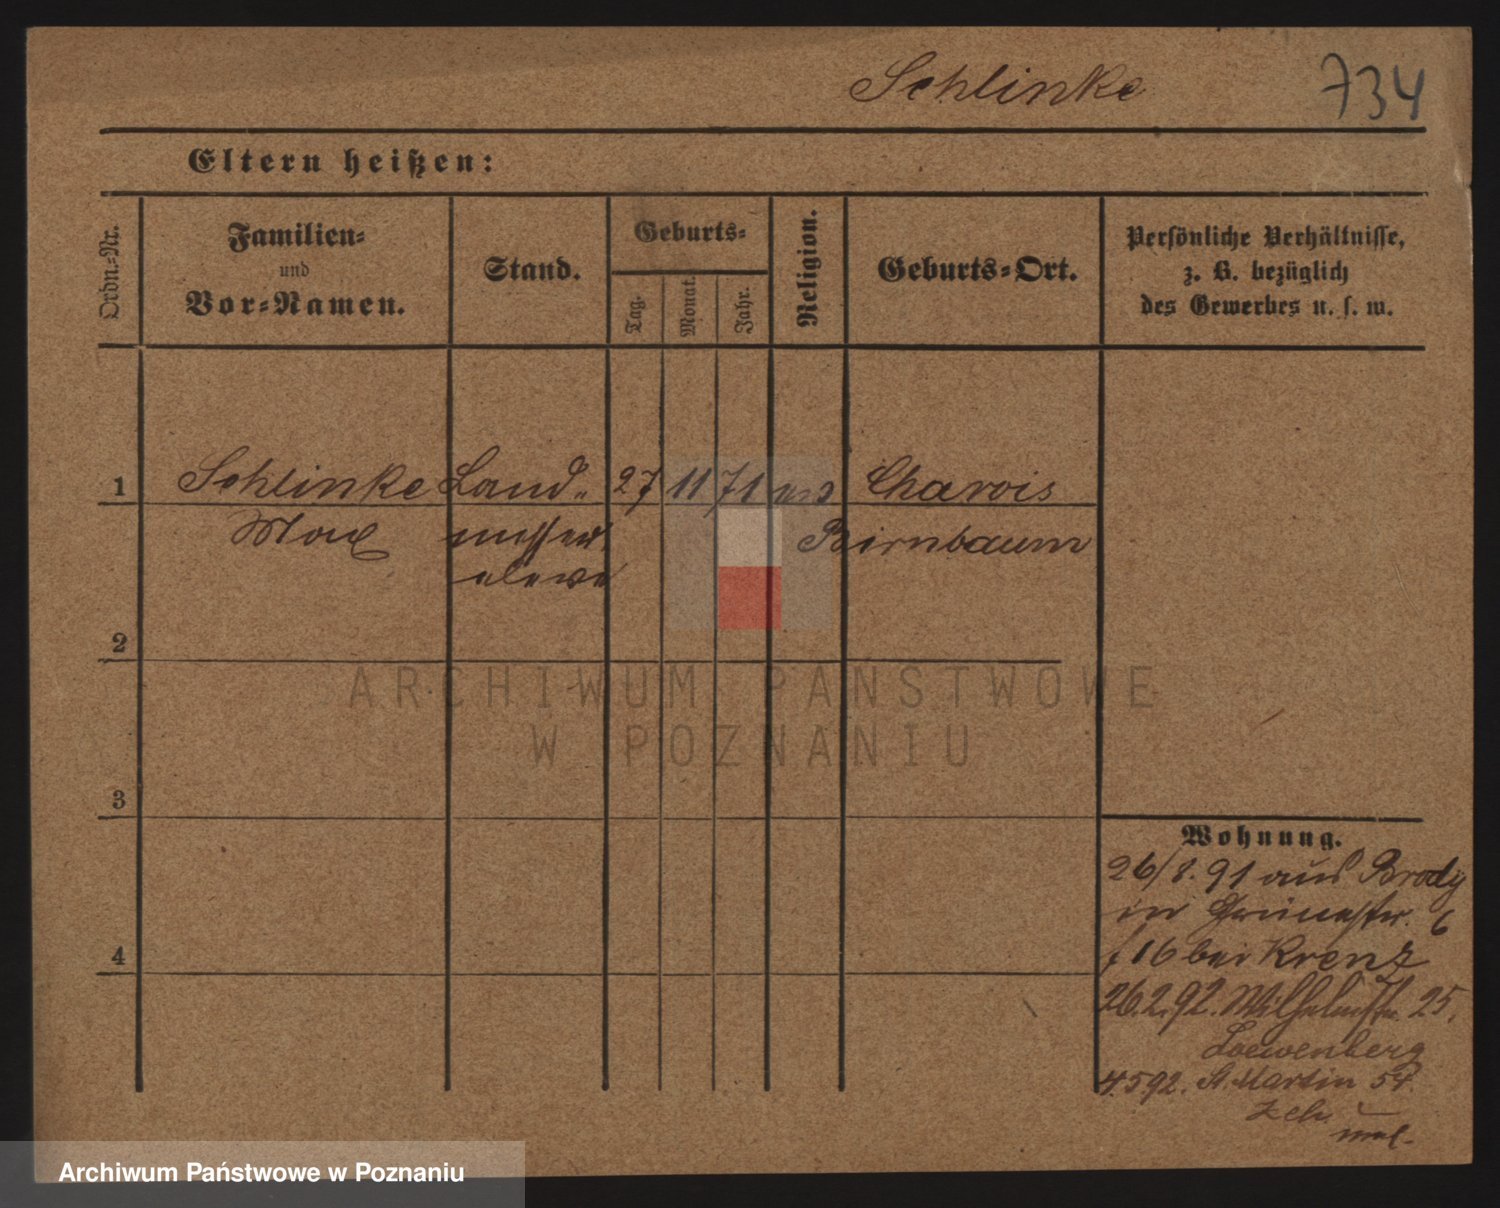 Schlinke 734
Eltern heißen:
Ordn.-Nr.
Familien-
und
Vor-Namen.
Stand.
Geburts-
Tag.
Monat.
Jahr.
Religion.
Geburts-Ort.
Persönliche Verhältnisse,
z. B. bezüglich
des Gewerbes u. s. w.
1 Schlinke Land- 27 11 71 Charcis
Max messer Birnbaum
eleve
2
ARCHIWUM PAŃSTWOWE
W POZNANIU
3
4
Wohnung.
26/8. 91 aus Brody
in Grünestr. 6
16 bei Krenz
26.2.92. Wilhelmstr. 25.
Loewenberg
4.5 92. St. Martin 54.
Archiwum Państwowe w Poznaniu